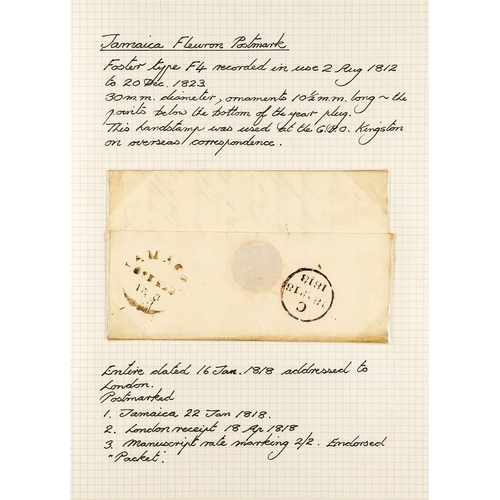 Jamaica Fleuron Postmark
Foster type F4 recorded in use 2 Aug 1812
to 20 Dec. 1823.
30 m.m. diameter, ornaments 10½ m.m. long ~ the
points below the bottom of the year plug.
This handstamp was used at the G.P.O. Kingston
on overseas correspondence.
JAMAICA
1818
C
18 AP 18
1818
Entire dated 16 Jan. 1818 addressed to
London.
Postmarked
1. Jamaica 22 Jan 1818.
2. London receipt 18 Ap 1818
3. Manuscript rate marking 2/2. Endorsed
"Packet".